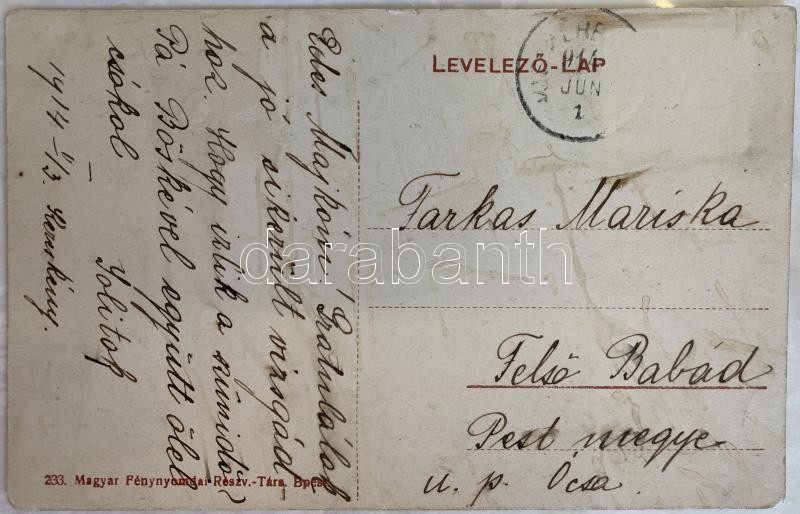 LEVELEZŐ-LAP
914
JUN
1
Farkas Mariska
Felső Babád
Pest megye
u. p. Ócsa.
Édes Majkóm! Gratulálok
a jó sikerült vizsgád-
hoz. Hogy izlik a szünidő?
Pá Böskével együtt ölel
csókol
Jolitok
1914 13.
233. Magyar Fénynyomdai Részv.-Társ. Bpest
darabanth